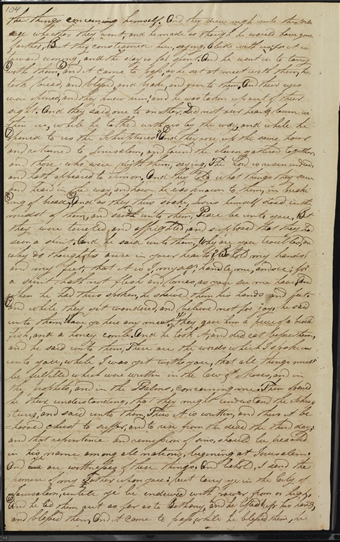 the things concerning himself, And they drew nigh unto the vil
age whither they went, and he made as though he would have gone
further, But they constrained him, saying, Abide with us for it is
toward evening, and the day is far spent, And he went in to tarry
with them, and it came to pass, as he sat at meat with them, he
took bread, and blessed, and brake, and gave to them, And their eyes
were opened, and they knew him; and he was taken up out of their
sight. And they said one to another, Did not our hearts burn in
us, while he talked with us by the way, and while he
opened to us the Scriptures? And they rose up the same hour
and returned to Jerusalem, and found the eleven gathered together,
and those who were with them, saying, The Lord is risen indeed,
and hath appeared to Simon, And they told what things they saw
and heard in the way, and how he was known to them, in break
ing of bread, And as they thus spake, Jesus himself stood in the
midst of them, and said unto them, Peace be unto you, But
they were terrified, and affrighted, and supposed that they had
seen a spirit, And he said unto them, Why are you troubled, and
why do thoughts arise in your hearts? Behold my hands
and my feet, that it is I, myself, handle me, and see; for
a spirit hath not flesh and bones, as you see me have, And
when he had thus spoken, he shewed them his hands and feet
And while they yet wondered, and believed not for joy, he said
unto them, Have ye here any meat? they gave him a piece of broiled
fish, and a honey comb, And he took it, and did eat before them,
and he said unto them, These are the words which I spake
unto you, while I was yet with you, that all things must
be fulfilled which were written in the law of Moses, and in
the prophets, and in the Psalms, concerning me, Then opened
he their understanding, that they might understand the Scrip
tures, and said unto them, Thus it is written, and thus it be
hoved Christ to suffer, and to rise from the dead the third day,
and that repentance and remission of sins, should be preached
in his name among all nations, begining at Jerusalem,
And ye are witnesses of these things, And behold, I send the
promise of my Father upon you; but tarry ye in the City of
Jerusalem, until ye be endued with power from on high,
And he led them out as far as to Bethany, and he lifted up his hands,
and blessed them, And it came to pass, while he blessed them, he